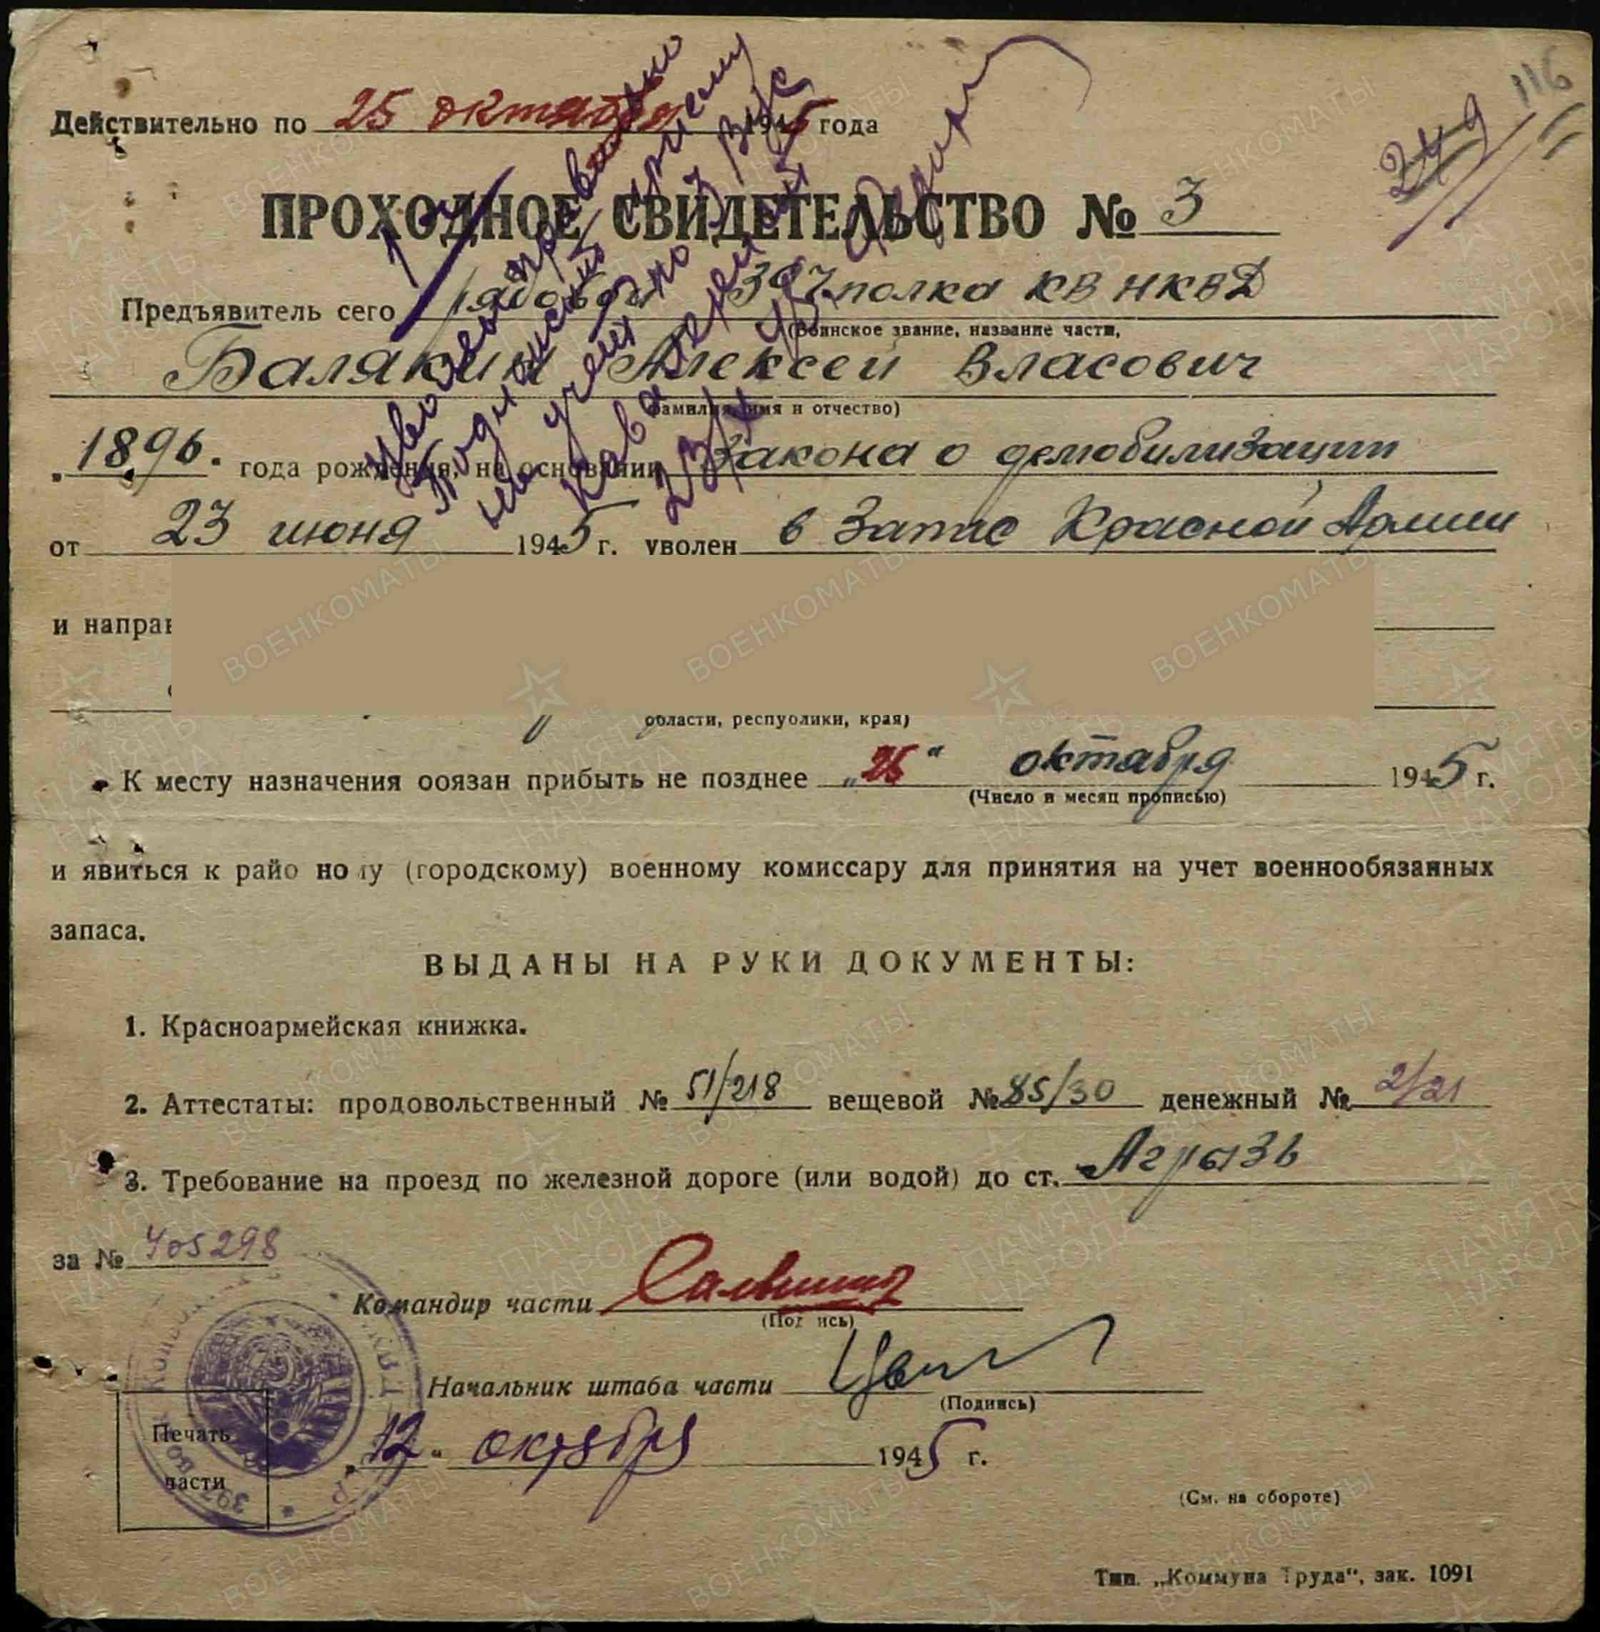 116
249
Действительно по 25 октября 1945 года
ПРОХОДНОЕ СВИДЕТЕЛЬСТВО № 3
Предъявитель сего рядовой 397 полка КВ НКВД
(воинское звание, название части,
Балякин Алексей Власович
фамилия, имя и отчество)
1896. года рождения, на основании Закона о демобилизации
от 23 июня 1945 г. уволен в Запас Красной Армии
и направ
области, республики, края)
К месту назначения обязан прибыть не позднее „25“ октября 1945 г.
(Число и месяц прописью)
и явиться к райо но у (городскому) военному комиссару для принятия на учет военнообязанных
запаса.
ВЫДАНЫ НА РУКИ ДОКУМЕНТЫ:
1. Красноармейская книжка.
2. Аттестаты: продовольственный № 51/218 вещевой № 85/30 денежный № 2/21
3. Требование на проезд по железной дороге (или водой) до ст. Агрызь
за № 405298
Командир части
(Под ись)
Начальник штаба части
(Подпись)
Печать
части
12 " октября 1945 г.
(См. на обороте)
Тип. „Коммуна Труда“, зак. 1091
ВОЕНКОМАТЫ
ПАМЯТЬ НАРОДА